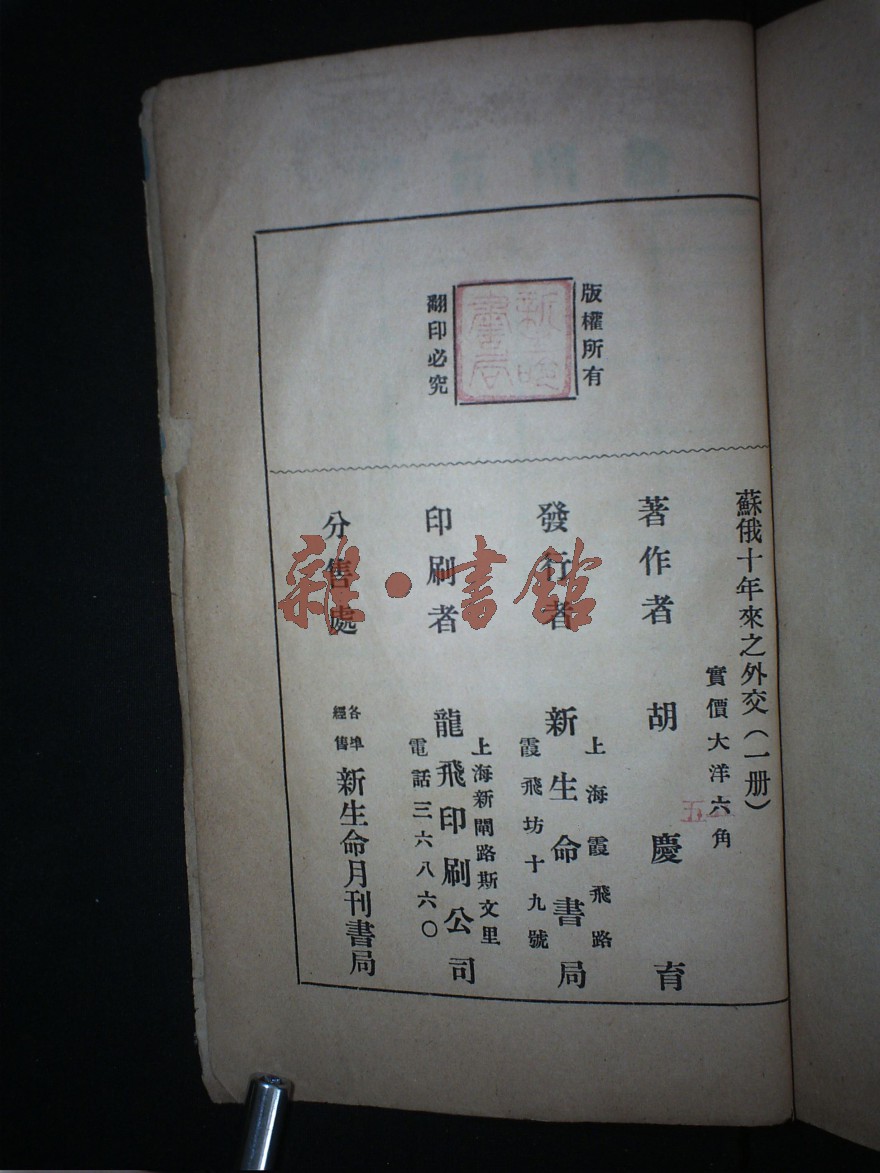 版權所有
翻印必究
蘇俄十年來之外交（一册）
實價大洋六角
著作者 胡慶育
發行者 新生命書局
上海霞飛路
霞飛坊十九號
印刷者 龍飛印刷公司
上海新閘路斯文里
電話三六八六〇
分售處 各埠經售 新生命月刊書局
雜·書館